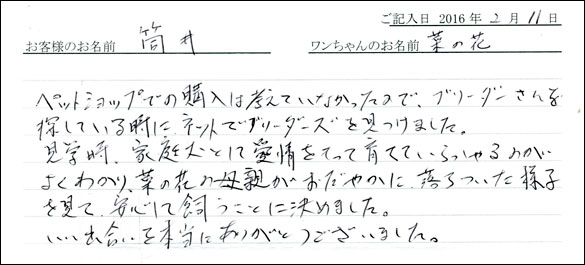 ご記入日 2016年2月11日
お客様のお名前 筒井 ワンちゃんのお名前 菜の花
ペットショップでの購入は考えていなかったので、ブリーダーさんを
探している時にネットでブリーダーズを見つけました。
見学時、家庭犬として愛情をもって育てていらっしゃるのが
よくわかり、菜の花の母親がおだやかに落ちついた様子
を見て、安心して飼うことに決めました。
いい出合いを本当にありがとうございました。